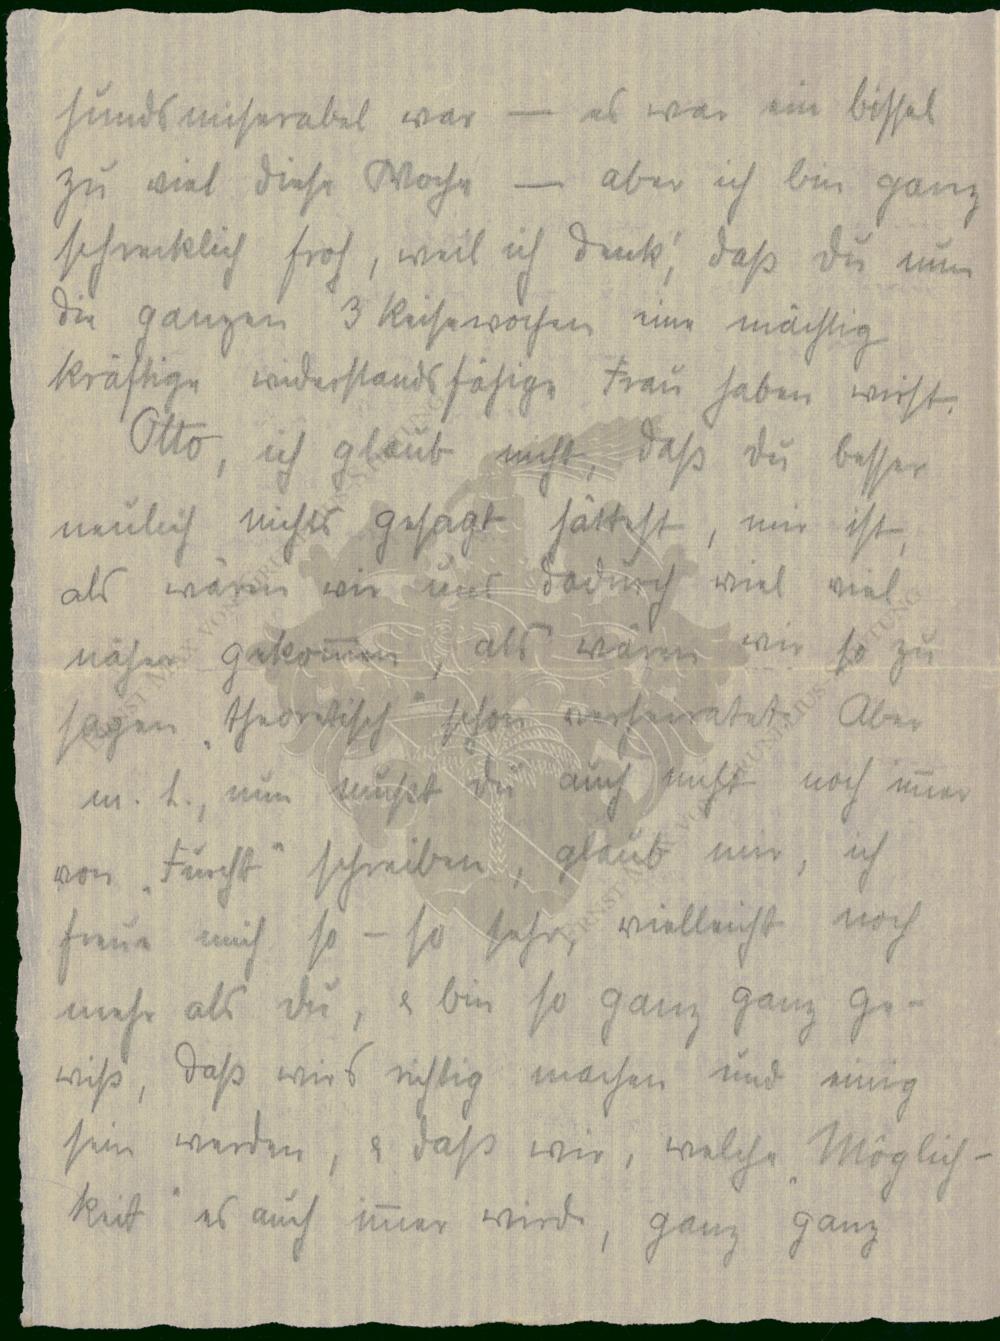 hundsmiserabel war — es war ein bissel
zu viel diese Woche — aber ich bin ganz
schrecklich froh, weil ich denk', daß du nun
die ganzen 3 Reisewochen eine mächtig
kräftige widerstandsfähige Frau haben wirst.
Otto, ich glaub nicht, daß du besser
neulich nichts gesagt hättest, mir ist,
als wären wir uns dadurch viel viel
näher gekom̅en, als wären wir so zu
sagen „theoretisch" schon verheiratet. Aber
m. L., nun mußt du auch nicht noch im̅er
von „Furcht" schreiben, glaub mir, ich
freue mich so – so sehr, vielleicht noch
mehr als du, & bin so ganz ganz ge-
wiß, daß wirs richtig machen und einig
sein werden, & daß wir, welche „Möglich-
keit" es auch im̅er wird, ganz ganz
ERNST MAX VON GRUNELIUS-STIFTUNG
ERNST MAX VON GRUNELIUS-STIFTUNG